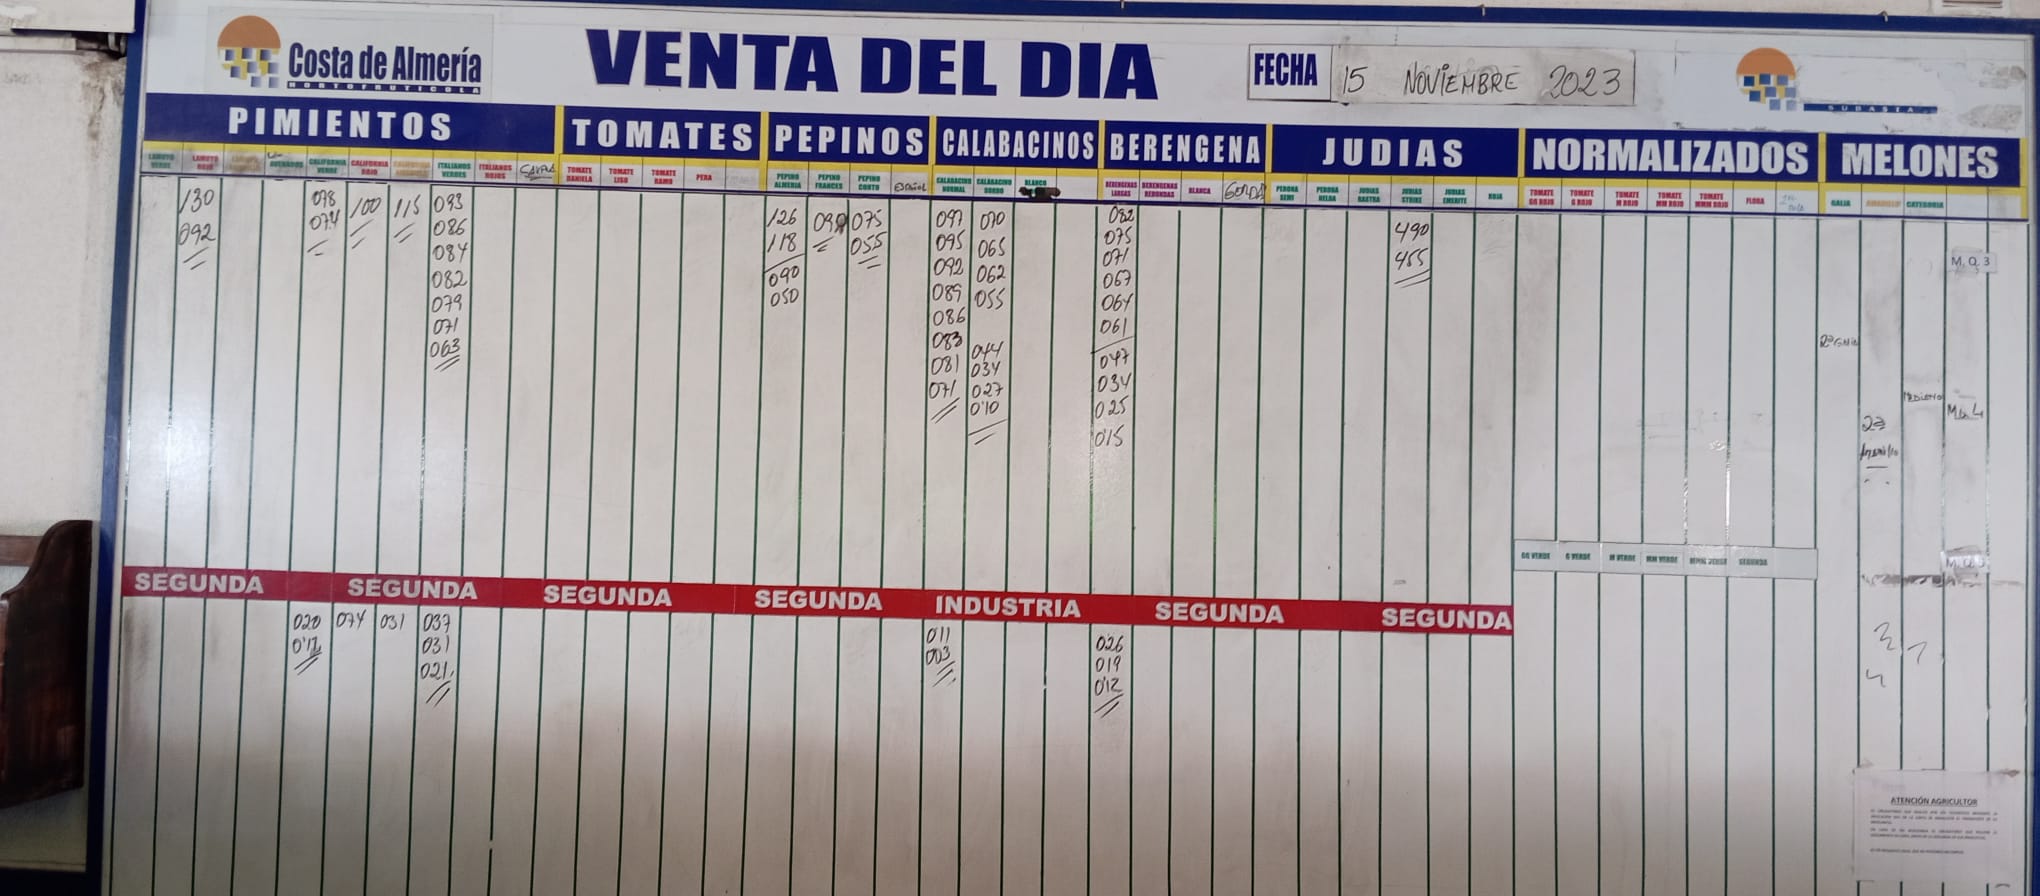 Costa de Almería
HORTOFRUTICOLA
VENTA DEL DIA
FECHA
15 NOVIEMBRE 2023
SUBASTA
PIMIENTOS
TOMATES
PEPINOS
CALABACINOS
BERENGENA
JUDIAS
NORMALIZADOS
MELONES
LAMUYO VERDE
LAMUYO ROJO
CALIFORNIA VERDE
CALIFORNIA ROJO
ITALIANOS VERDES
ITALIANOS ROJOS
TOMATE DANIELA
TOMATE LISO
TOMATE RAMO
PERA
PEPINO ALMERIA
PEPINO FRANCES
PEPINO CORTO
ESPAÑOL
CALABACINO NORMAL
CALABACINO GORDO
BLANCO
BERENGENAS LARGAS
BERENGENAS REDONDAS
BLANCA
GORDA
PERONA SEMI
PERONA HELDA
JUDIAS RASTRA
JUDIAS STRIKE
JUDIAS EMERITE
ROJA
TOMATE GG ROJO
TOMATE G ROJO
TOMATE M ROJO
TOMATE MM ROJO
TOMATE MMM ROJO
FLORA
GALIA
AMARILLO
CATEGORIA
130
092
078
074
100
115
093
086
084
082
079
071
063
126
118
090
050
075
055
097
095
092
089
086
083
081
071
070
065
062
055
044
034
027
0'10
082
075
071
067
064
061
047
034
025
0'15
490
455
M. Q. 3
2ª GALIA
2ª
GG VERDE
G VERDE
M VERDE
MM VERDE
MMM VERDE
SEGUNDA
SEGUNDA
SEGUNDA
SEGUNDA
SEGUNDA
INDUSTRIA
SEGUNDA
SEGUNDA
020
0'12
074
031
037
031
021
0'11
003
026
019
0'12
ATENCIÓN AGRICULTOR